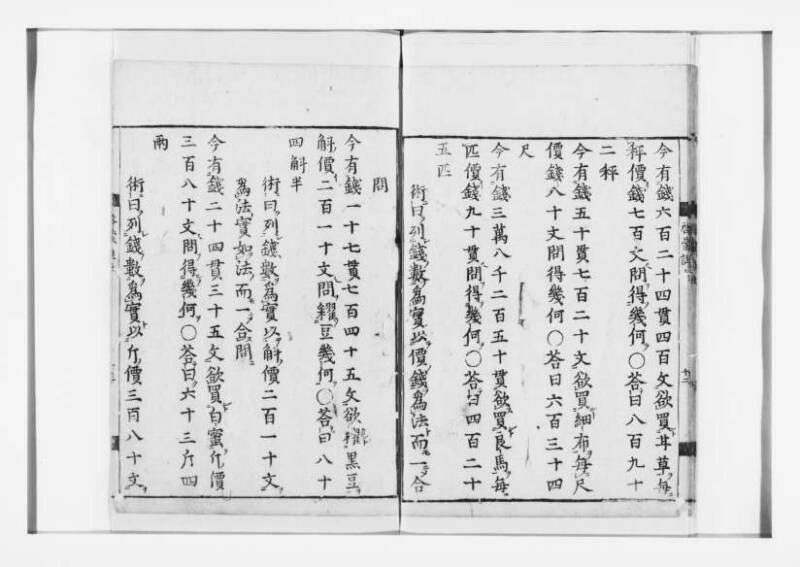 今有錢六百二十四貫四百文欲買甘草每
秤價錢七百文問得幾何〇荅曰八百九十
二秤
今有錢五十貫七百二十文欲買細布每尺
價錢八十文問得幾何〇荅曰六百三十四
尺
今有錢三萬八千二百五十貫欲買良馬每
匹價錢九十貫問得幾何〇荅曰四百二十
五匹
術曰列錢數爲實以價錢爲法而一合
問
今有錢一十七貫七百四十五文欲糴黑豆
斛價二百一十文問糴豆幾何〇荅曰八十
四斛半
術曰列錢數爲實以斛價二百一十文
爲法實如法而一合問
今有錢二十四貫三十五文欲買白蜜斤價
三百八十文問得幾何〇荅曰六十三斤四
兩
術曰列錢數爲實以斤價三百八十文